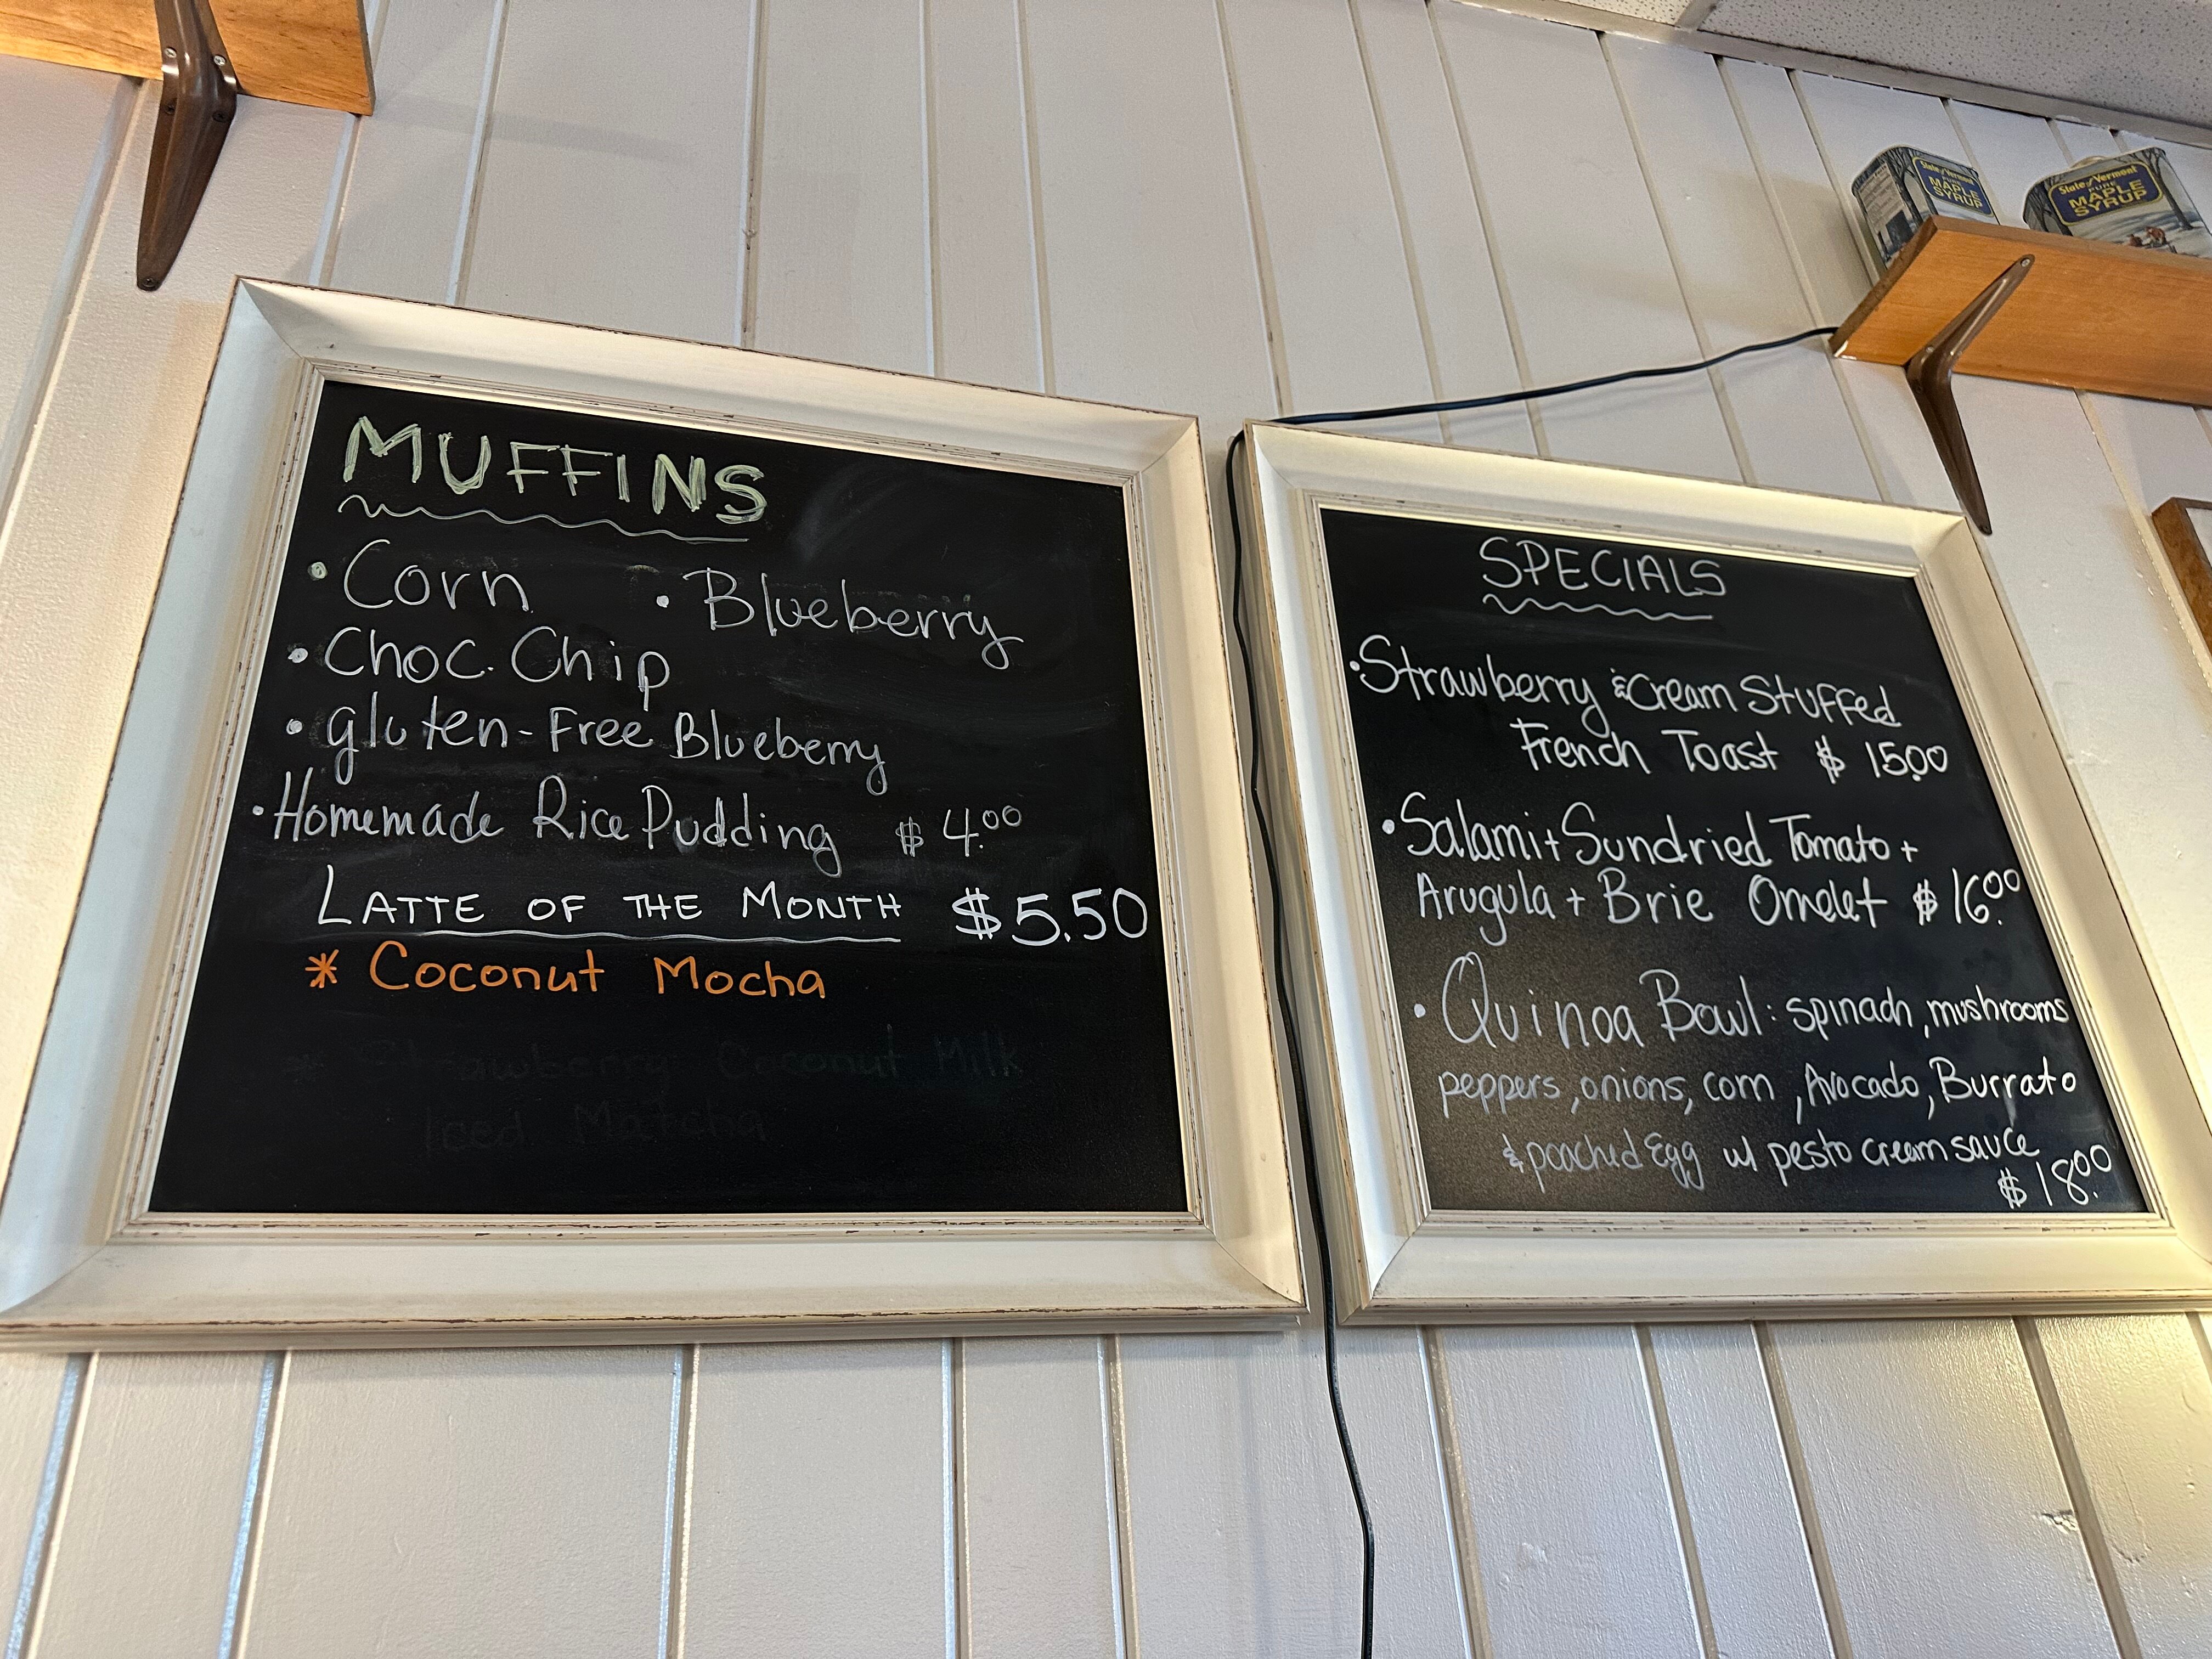 MUFFINS
• Corn • Blueberry
• Choc. Chip
• gluten-Free Blueberry
• Homemade Rice Pudding $ 4.00
LATTE OF THE MONTH $5.50
* Coconut Mocha
* Strawberry Coconut Milk
Iced Matcha
SPECIALS
• Strawberry & Cream Stuffed
French Toast $ 15.00
• Salami + Sundried Tomato +
Arugula + Brie Omelet $ 16.00
• Quinoa Bowl: spinach, mushrooms
peppers, onions, corn, Avocado, Burrato
& poached Egg w/ pesto cream sauce
$ 18.00
State of Vermont
PURE
MAPLE
SYRUP
State of Vermont
PURE
MAPLE
SYRUP